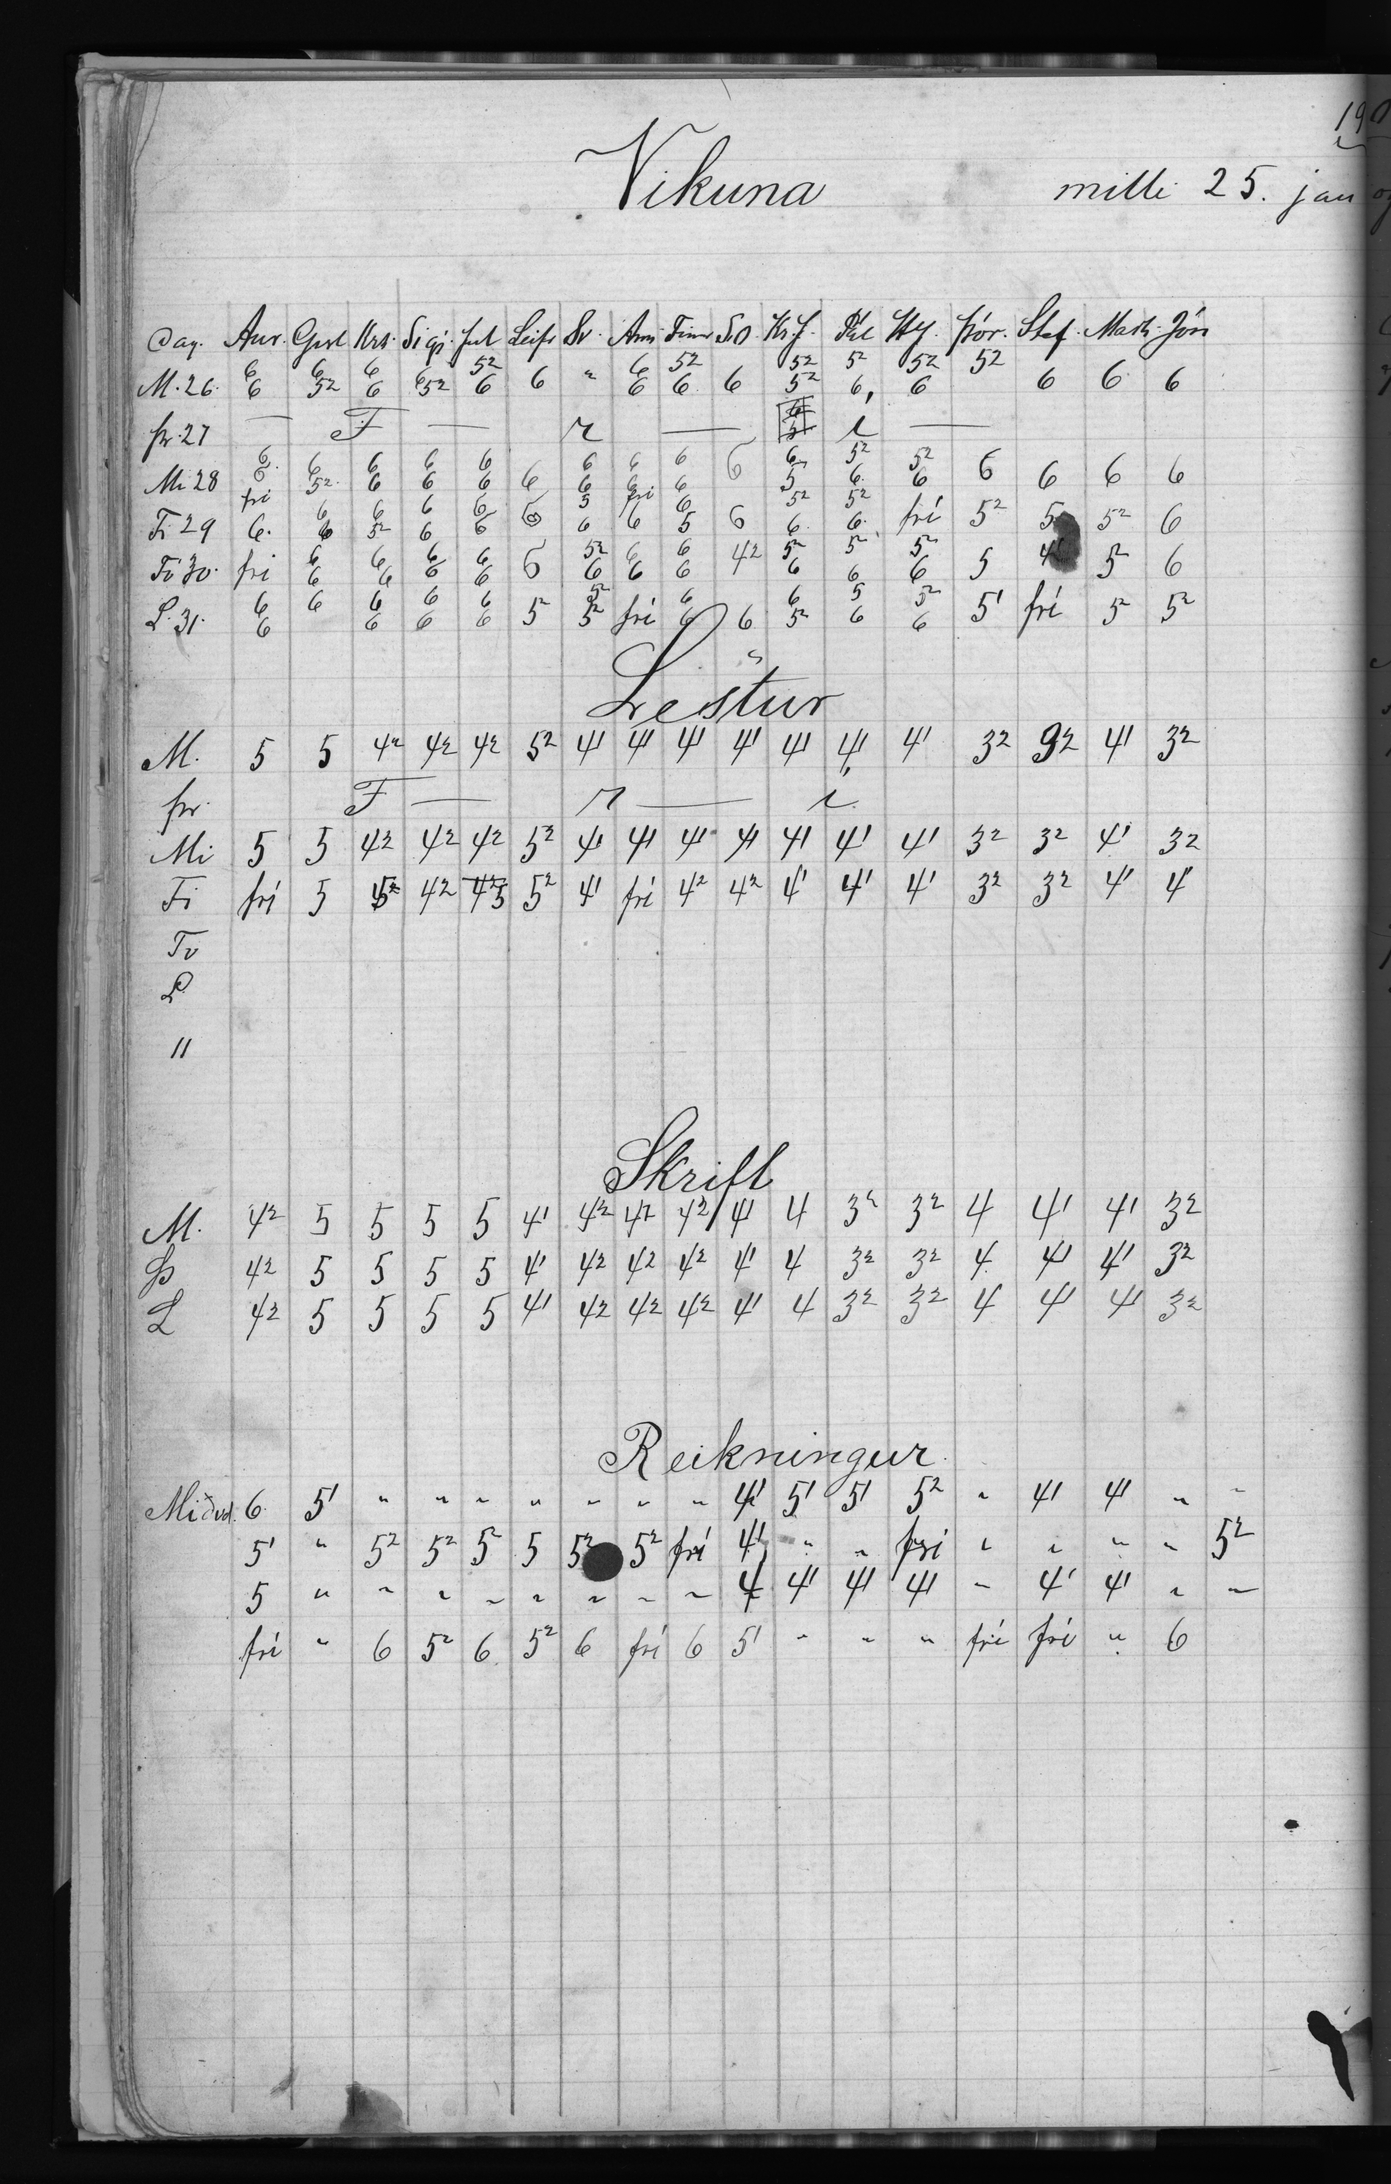 190
Vikuna milli 25. jan og
Dag. Aur. Gesl Krs. Sigj. Jul Leifr Sv. Arn Finn S.O Kr.J. Pál HJ. Þór. Stef. Mark. Jón
6 6 6 6 5² 6 5² 5² 5² 5² 5²
M. 26. 6 5² 6 5² 6 6 " 6 6 6 5² 6, 6 6 6 6
Þr. 27 — F — r — í —
6 6 6 6 6 6 6 6 6 5² 5²
Mi 28 6 5² 6 6 6 6 6 6 6 6 5 6 6 6 6 6 6
frí 6 6 6 6 5 frí 6 5² 5²
Fi 29 6. 6 5² 6 6 6 6 6 5 6 6 6 frí 5² 5 5² 6
6 6 6 6 5² 6 6 5² 5² 5²
Fö 30. frí 6 6 6 6 6 6 6 6 4² 6 6 6 5 4 5² 6
6 6 6 6 6 5² 6 6 5 5²
L. 31. 6 6 6 6 5² 5² frí 6 6 5² 6 6 5¹ frí 5² 5²
Lestur
M. 5 5 4² 4² 4² 5² 4¹ 4¹ 4¹ 4¹ 4¹ 4¹ 4¹ 3² 3² 4¹ 3²
Þr. F — r — í
Mi 5 5 4² 4² 4² 5² 4¹ 4¹ 4¹ 4¹ 4¹ 4¹ 4¹ 3² 3² 4¹ 3²
Fi frí 5 5² 4² 5 5² 4¹ frí 4² 4² 4¹ 4¹ 4¹ 3² 3² 4¹ 4
Fö
L
"
Skrift
M. 4² 5 5 5 5 4¹ 4² 4² 4² 4¹ 4 3² 3² 4 4¹ 4¹ 3²
Þ 4² 5 5 5 5 4¹ 4² 4² 4² 4¹ 4 3² 3² 4 4¹ 4¹ 3²
L 4² 5 5 5 5 4¹ 4² 4² 4² 4¹ 4 3² 3² 4 4¹ 4¹ 3²
Reikningur
Miðvd. 6 5¹ " " " " " " " 4¹ 5¹ 5¹ 5² " 4¹ 4¹ " "
5¹ " 5² 5² 5² 5 5² 5² frí 4¹ " " frí " " " " 5²
5 " " " " " " " " 4 4¹ 4¹ 4¹ " 4¹ 4¹ " "
frí " 6 5² 6 5² 6 frí 6 5¹ " " " frí frí " 6